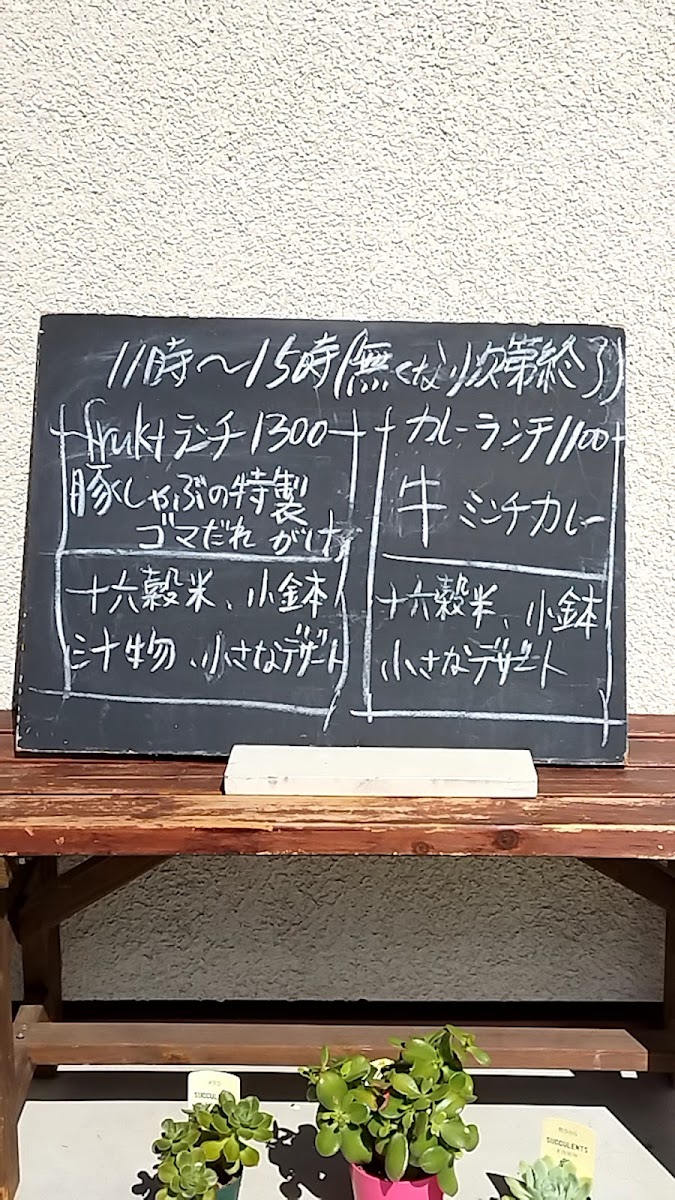 11時〜15時(無くなり次第終了)
fruktランチ1300
豚しゃぶの特製
ゴマだれがけ
十六穀米、小鉢
汁物、小さなデザート
カレーランチ1100
牛ミンチカレー
十六穀米、小鉢
小さなデザート
SUCCULENTS